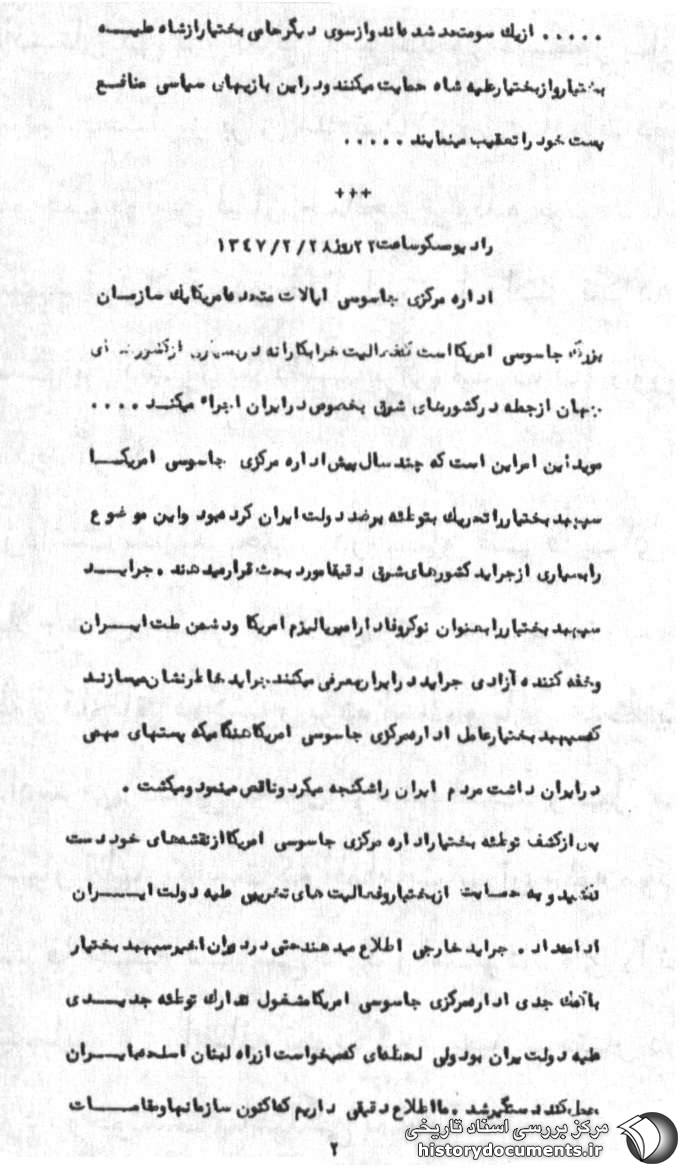 ..... ازیك سومتحد شده‌اند وازسوی دیگرحامی بختیارازشاه علیـــه
بختیاروازبختیارعلیه شاه حمایت میکنند ودراین بازیهای سیاسی منافــع
پست خود را تعقیب مینمایند .....
+++
رادیومسکوساعت ۲۲ روز ۱۳٤۷/۲/۲۸
اداره مرکزی جاسوسی ایالات متحده امریکایك سازمــان
بزرگ جاسوسی امریکااست که فعالیت خرابکارانه دربسیاری ازکشورهای
جهان ازجمله درکشورهای شرق بخصوص درایران اجراء میکنــد ....
موید این امراین است که چند سال پیش اداره مرکزی جاسوسی امریکـــا
سپهبد بختیارراتحریك بتوطئه برضد دولت ایران کرده بود واین موضوع
رابسیاری ازجراید کشورهای شرق دقیقامورد بحث قرارمیدهند . جرایــد
سپهبد بختیاررابعنوان نوکروفادارامپریالیزم امریکا ودشمن ملت ایــران
وخفه کننده آزادی جراید درایران معرفی میکنند . جراید خاطرنشان میسازنـد
که سپهبد بختیارعامل اداره مرکزی جاسوسی امریکا هنگامیکه پستهای مهمی
درایران داشت مردم ایران راشکنجه میکرد وناقص مینمود ومیکشت .
پس ازکشف توطئه بختیاراداره مرکزی جاسوسی امریکا ازنقشه‌های خود دست
نکشید و به حمایت ازبختیاروفعالیت های تخریبی علیه دولت ایـــران
ادامه داد . جراید خارجی اطلاع میدهند حتی در دوران اخیرسپهبد بختیار
باکمك جدی اداره مرکزی جاسوسی امریکا مشغول تدارك توطئه جدیــدی
علیه دولت ایران بود ولی لحظه‌ای که میخواست ازراه لبنان اسلحه بایــران
حمل کند دستگیرشد . مااطلاع دقیقی داریم که اکنون سازمانها ومقامـــات
۲
مرکز بررسی اسناد تاریخی
historydocuments.ir